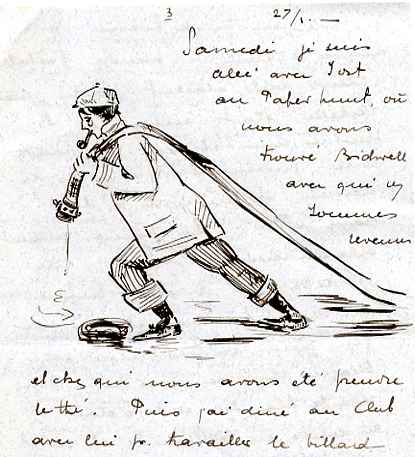 3
27/1. —
Samedi je suis
allé avec Jost
au Paper hunt, où
nous avons
trouvé Bidwell
avec qui ns
sommes
revenus
et chez qui nous avons été prendre
le thé. Puis j'ai diné au Club
avec lui pr. travailler le billard